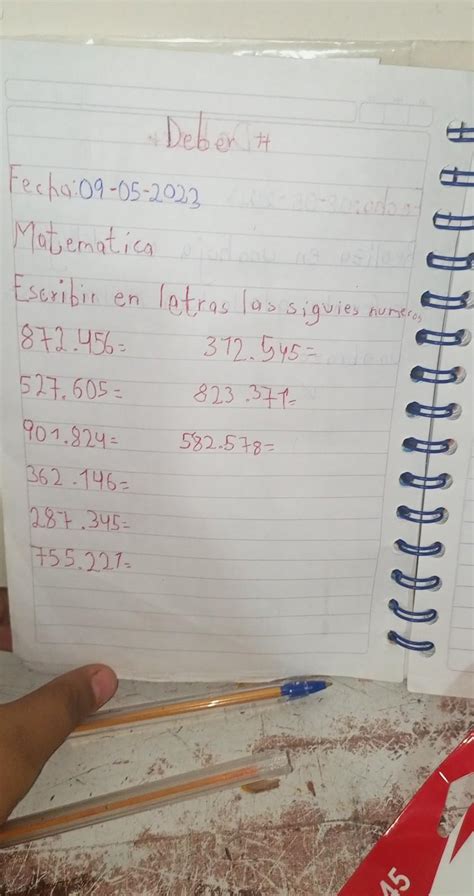 Deber #
Fecha: 09-05-2023
Matematica
Escribir en letras las siguies numeros
872.456= 312.545=
527.605= 823.371=
901.824= 582.578=
362.146=
287.345=
755.221=
45